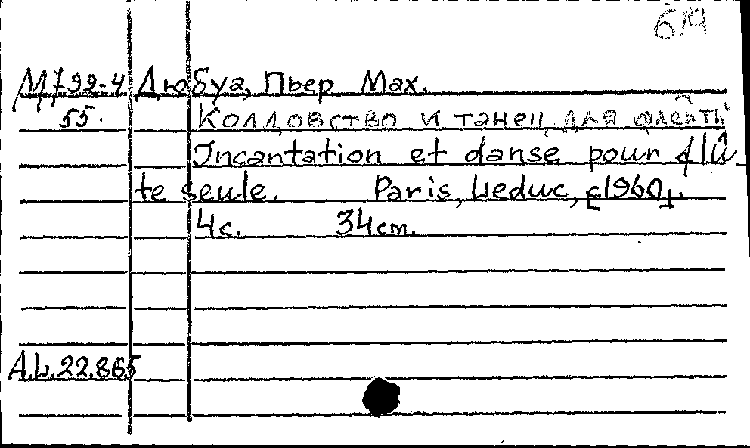 б/п
М 792-4 Дюбуа, Пьер Мах.
55. Колдовство и танец для флейты
Incantation et danse pour flû-
te seule. Paris, Leduc, [c1960].
4с. 34см.
A.L.22.865